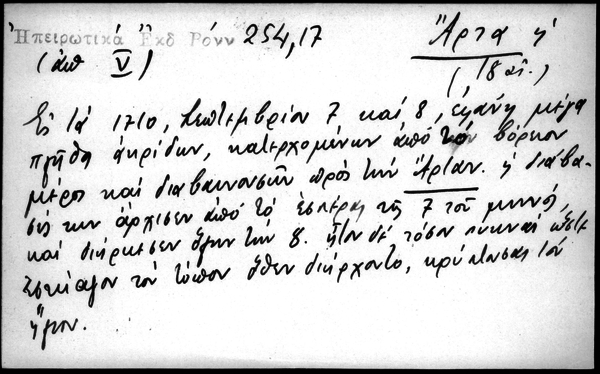 Ἠπειρωτικά Ἐκδ Ρόνν 254,17 Ἄρτα ἡ
(ἀπ V) (18 αἰ.)
Εἰς τά 1710, Σεπτεμβρίου 7 καί 8, ἐφάνη μέγα
πλῆθος ἀκρίδων, κατερχομένων ἀπό τόν βόρειον
μέρος καί διαβαινουσῶν πρός τήν Ἄρταν. ἡ διάβα-
σίς των ἄρχισεν ἀπό τό ἑσπέρας τῆς 7 τοῦ μηνός,
καί διήρκεσεν ὅλην τήν 8. ἦτον δέ τόσον πυκναί ὥστε
ἐσκίαζον τόν τόπον ὅθεν διήρχοντο, κρύπτουσαι τόν
ἥλιον.